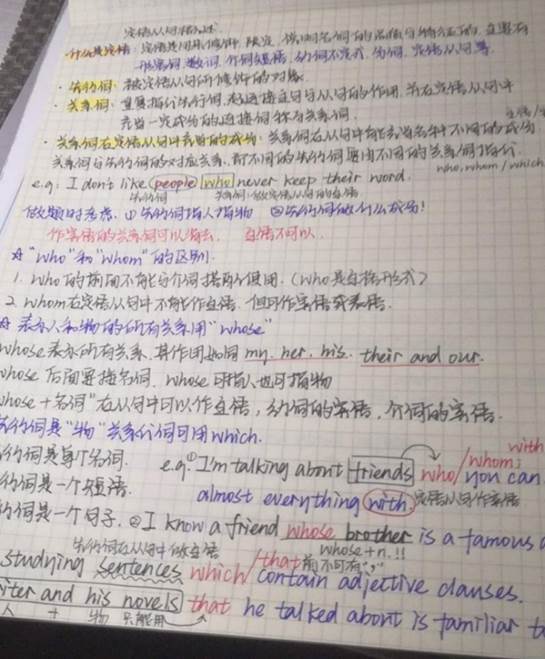 定语从句概述
什么是定语：定语是用来修饰、限定、说明名词的品质与特征的，主要有
形容词、数词、介词短语、动词不定式、分词、定语从句等
·先行词：被定语从句所修饰的对象.
·关系词：重复指代先行词，起连接主句与从句的作用，并在定语从句中
充当一定成分的连接词称为关系词.
·关系词在定语从句中充当的成分：关系词在从句中能充当各种不同的成分
关系词与先行词的对应关系，即不同的先行词要由不同的关系词指代.
who, whom / which
e.g: I don't like people who never keep their word.
先行词 先行词：做定语从句的主语
做题时考虑：①先行词指人指物 ②先行词做什么成分！
作宾语的关系词可以省去，主语不可以.
☆"who"和"whom"的区别：
1. who的前面不能与介词搭配使用.（who是主格形式）
2. whom在定语从句中不能作主语，但可作宾语或表语.
☆表示人和物的所有关系用"whose"
whose表示所有关系，其作用如同my. her. his. their and our.
whose后面要接名词. whose可指人也可指物
whose+名词"在从句中可以作主语，动词的宾语，介词的宾语.
先行词是"物"关系代词可用which.
行词是每个名词. e.g.①I'm talking about friends who/whom; with
行词是一个短语. you can
almost everything with 定语从句作宾语
行词是一个句子. ②I know a friend whose brother is a famous
先行词在从句中做主语 whose+n.!!
studying sentences which/that contain adjective clauses.
前不可有","
iter and his novels that he talked about is familiar t
人 + 物 只能用